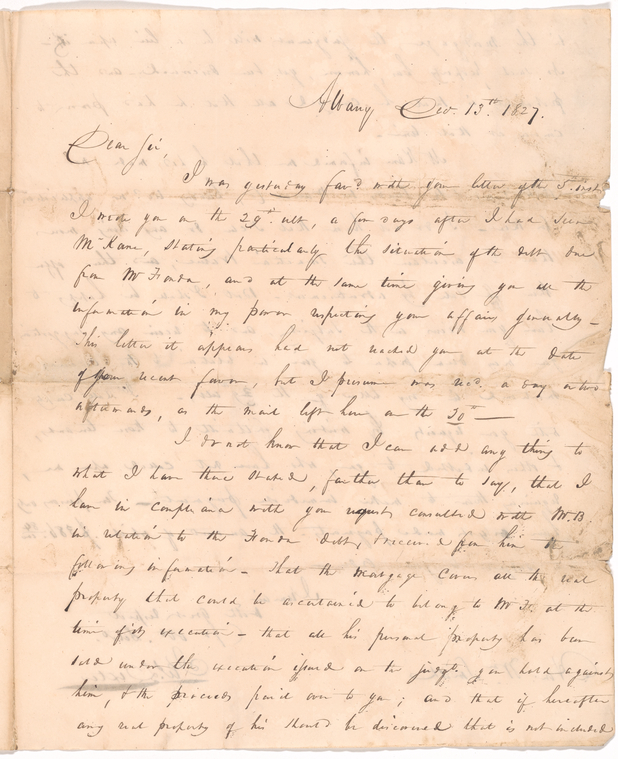 Albany Dec. 13th 1827.
Dear Sir,
I was yesterday fav.d with your letter of the 5th inst.
I wrote you on the 29th ult, a few days after I had seen
McKane, stating particularly the situation of the debt due
from Mr Fonda, and at the same time giving you all the
information in my power respecting your affairs generally—
This letter it appears had not reached you at the date
of your recent favor, but I presume was recd. a day or two
afterwards, as the mail left here on the 30th—
I do not know that I can add any thing to
what I have then stated, farther than to say, that I
have in compliance with your request consulted with Mr. B.
in relation to the Fonda debt, & received from him the
following information— That the mortgage covers all the real
property that could be ascertained to belong to Mr F. at the
time of its execution— that all his personal property has been
sold under the execution issued on the judgt. you hold against
him, & the proceeds paid over to you; and that if hereafter
any real property of his should be discovered that is not included